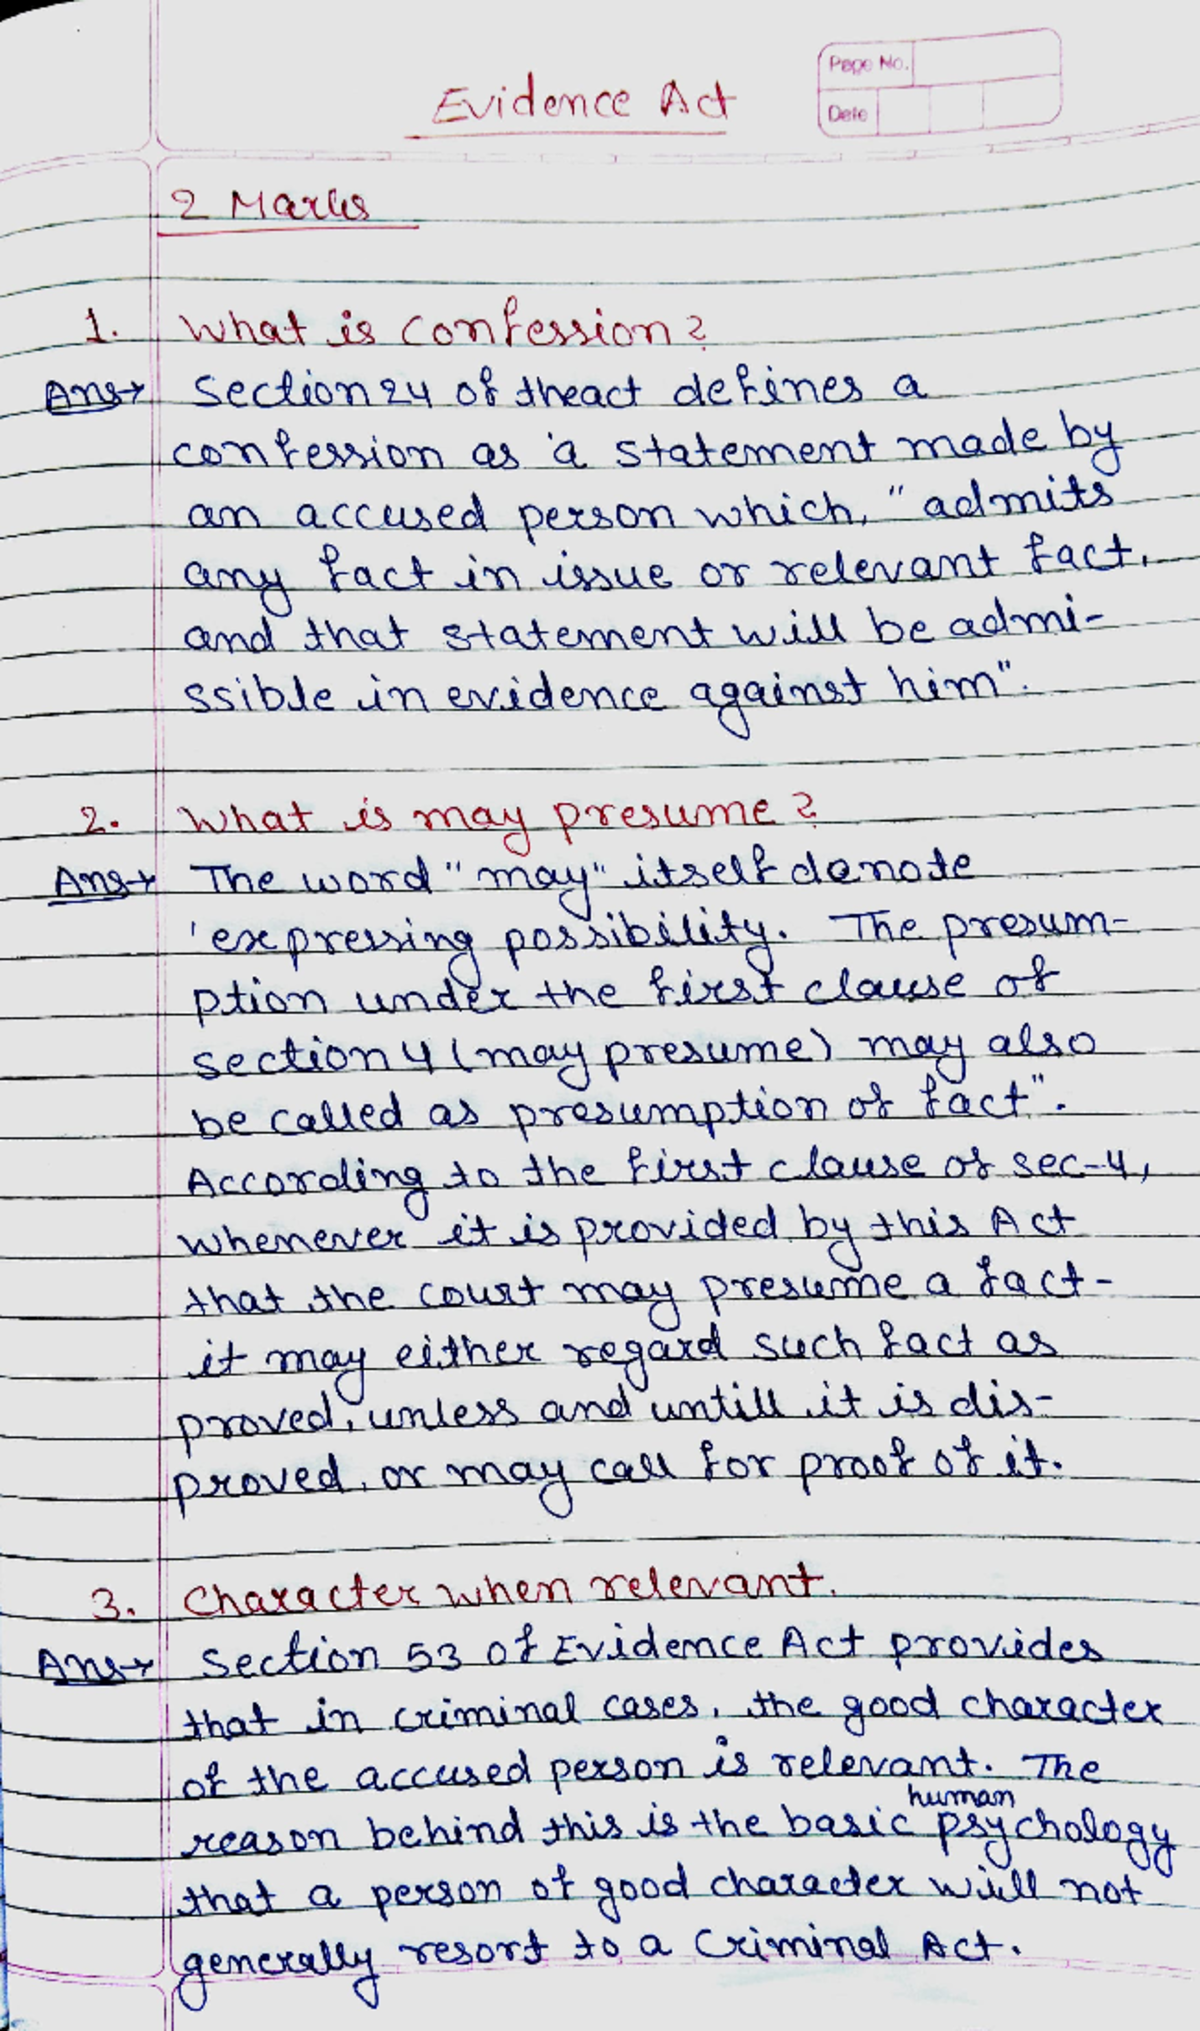 Evidence Act
Page No.
Date
2 Marks
1. What is confession?
Ans→ Section 24 of the act defines a
confession as 'a statement made by
an accused person which, "admits
any fact in issue or relevant fact,
and that statement will be admi-
ssible in evidence against him".
2. What is may presume?
Ans→ The word "may" itself denote
'expressing possibility. The presum-
ption under the first clause of
section 4 (may presume) may also
be called as presumption of fact".
According to the first clause of sec-4,
whenever it is provided by this Act
that the court may presume a fact-
it may either regard such fact as
proved, unless and untill it is dis-
proved, or may call for proof of it.
3. Character when relevant.
Ans→ Section 53 of Evidence Act provides
that in criminal cases, the good character
of the accused person is relevant. The
reason behind this is the basic human psychology
that a person of good character will not
generally resort to a Criminal Act.